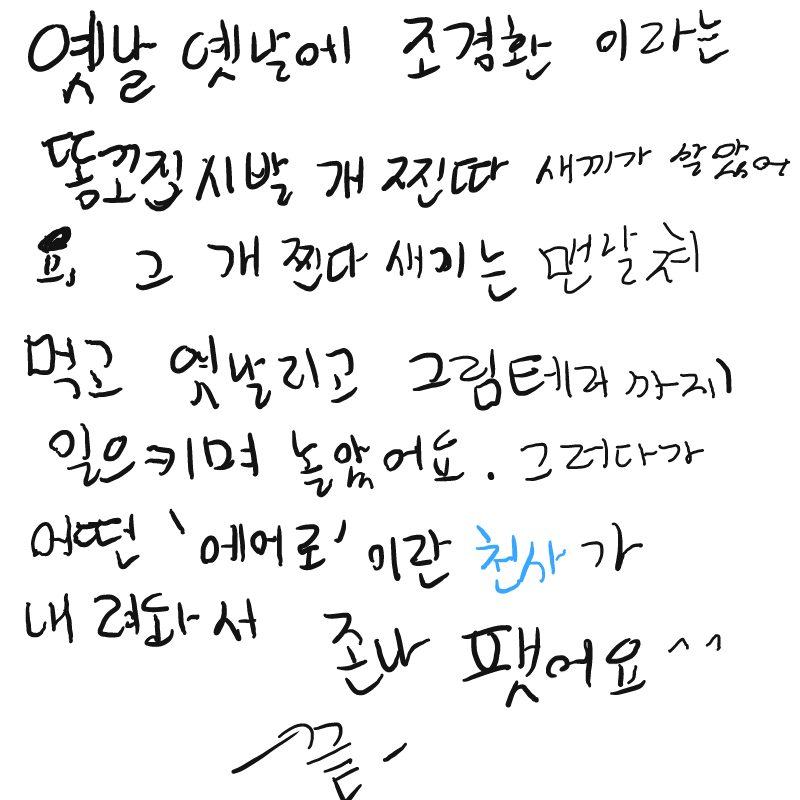 옛날 옛날에 조겸환 이라는
똥꼬집 시발 개 찐따 새끼가 살았어
요, 그 개 찐다 새기는 맨날 취
먹고 옛날리고 그림테러 까지
일으키며 놀았어요. 그러다가
어떤 '에어로' 이란 천사가
내려와서 존나 팻어요^^
끝-